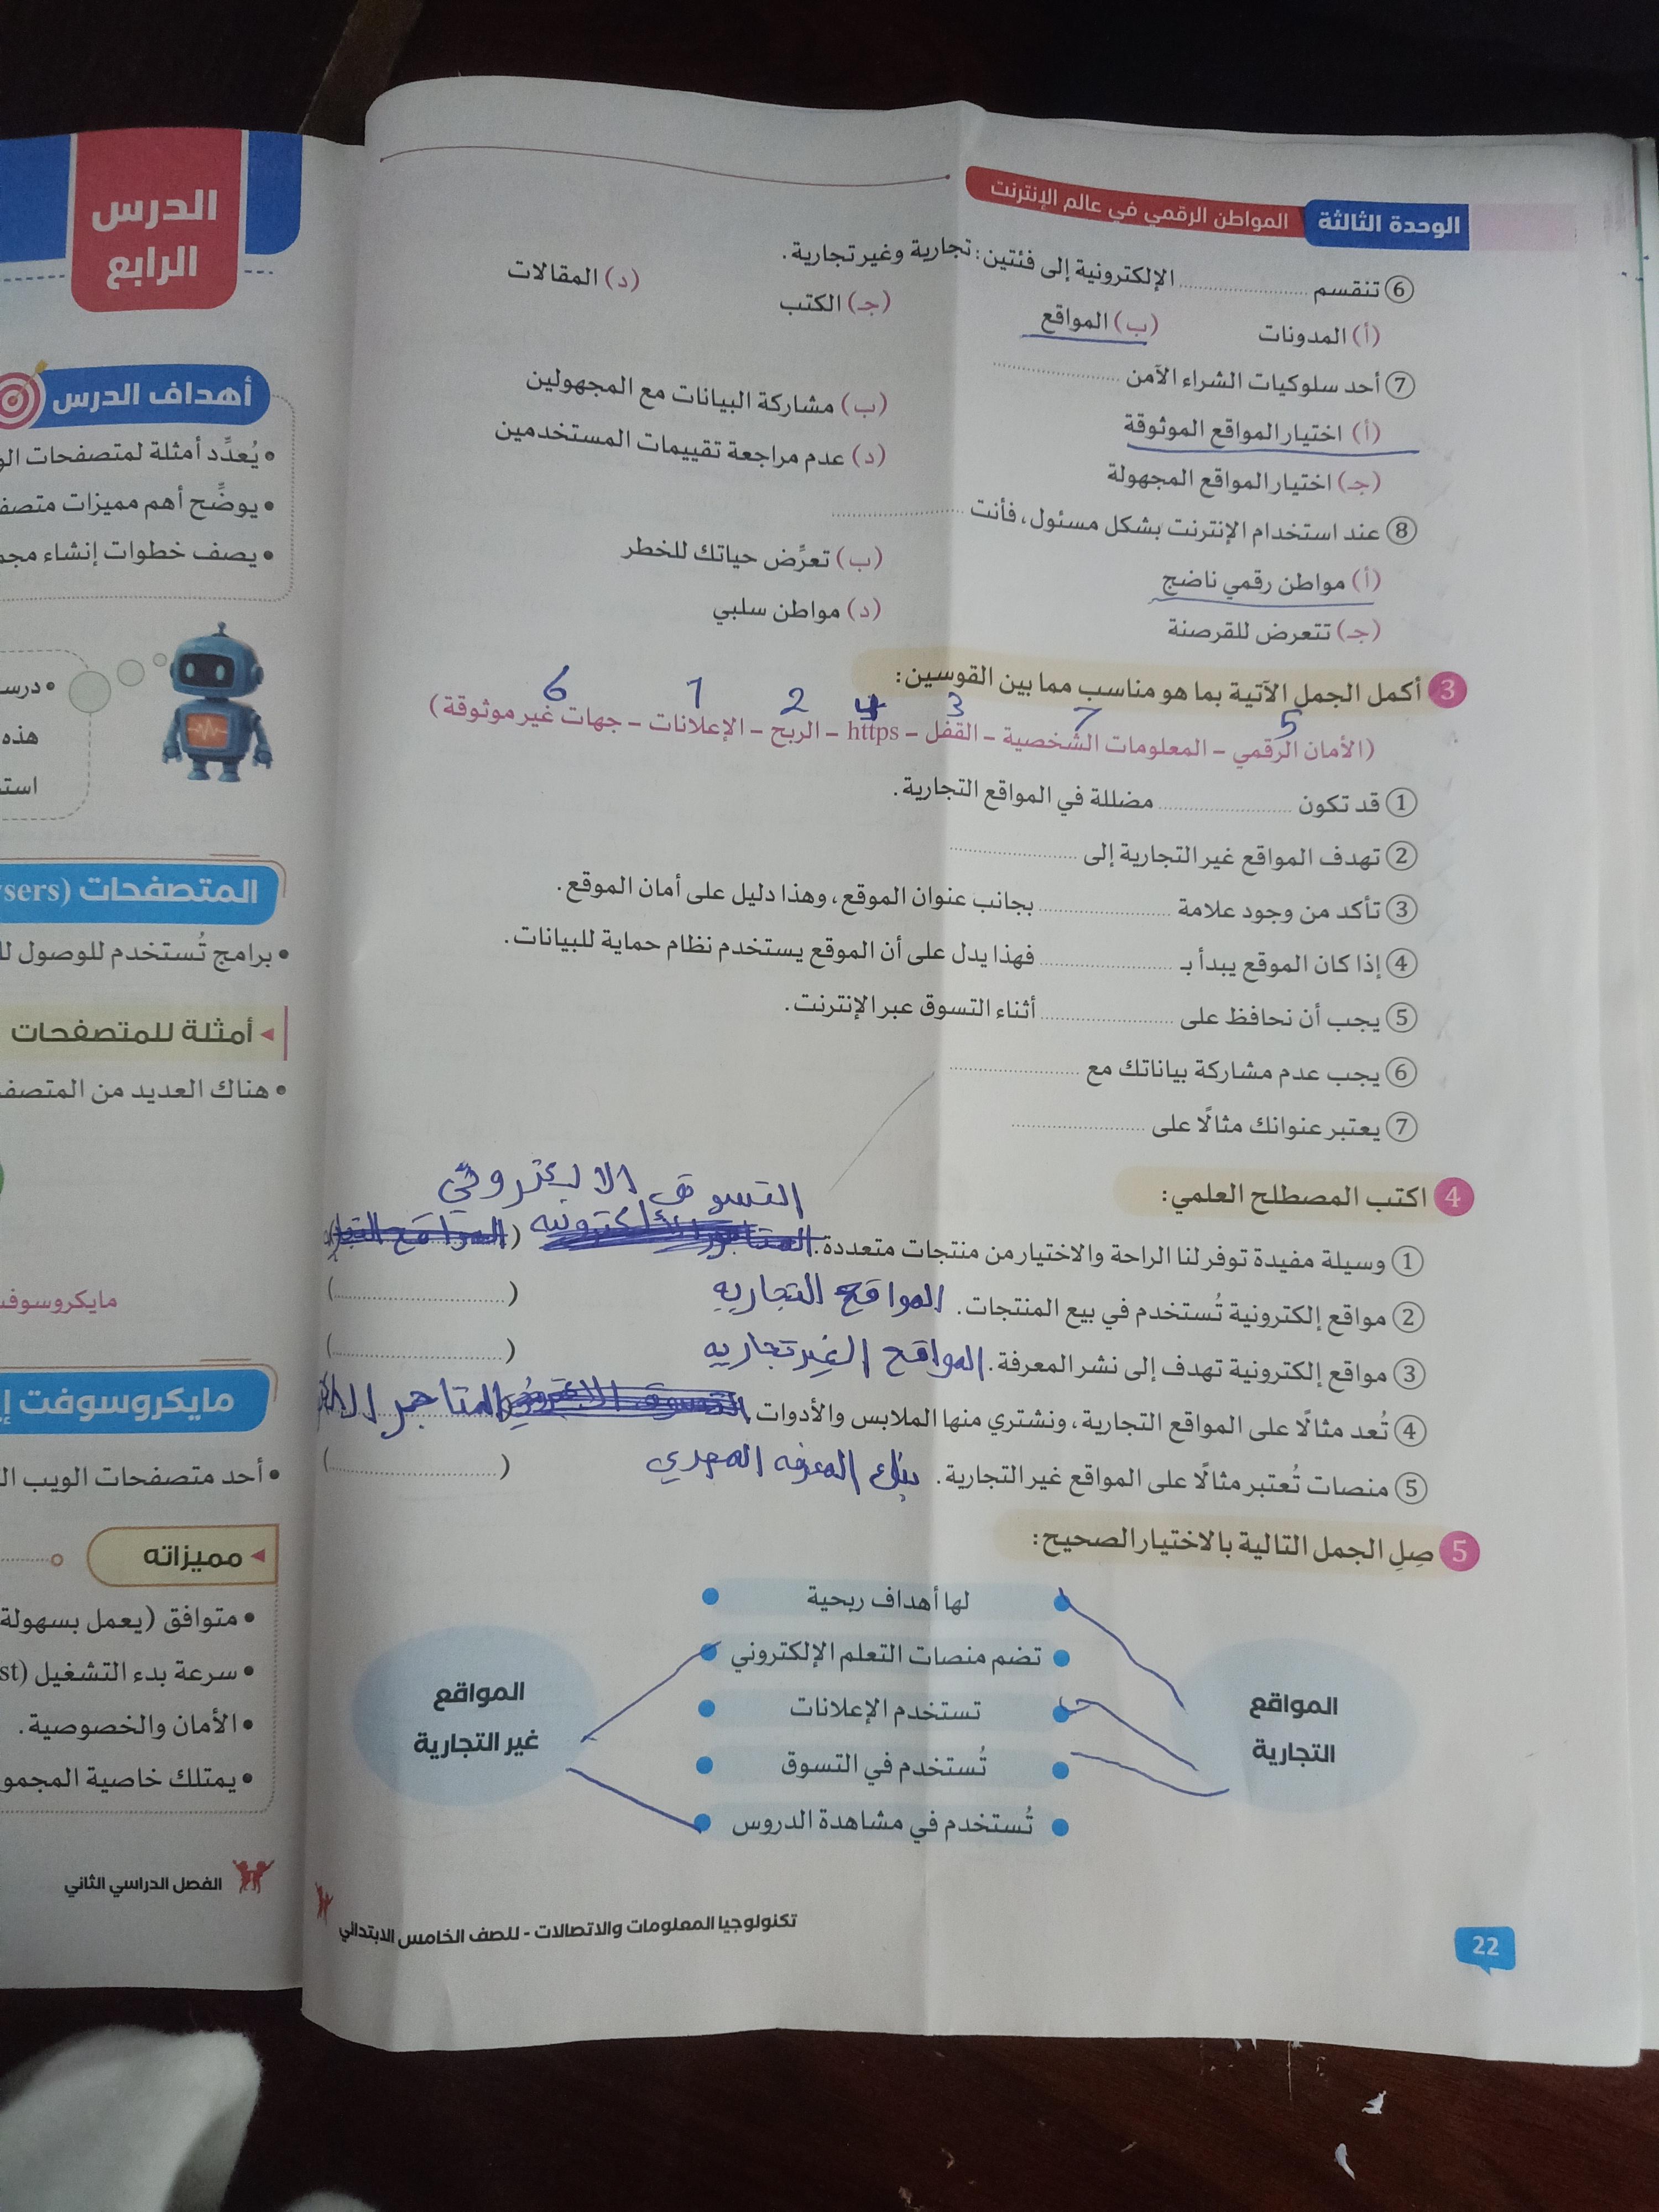 الوحدة الثالثة المواطن الرقمي في عالم الإنترنت
⑥ تنقسم .................... الإلكترونية إلى فئتين: تجارية وغير تجارية.
(أ) المدونات (ب) المواقع (جـ) الكتب (د) المقالات
⑦ أحد سلوكيات الشراء الآمن ....................
(أ) اختيار المواقع الموثوقة (ب) مشاركة البيانات مع المجهولين
(جـ) اختيار المواقع المجهولة (د) عدم مراجعة تقييمات المستخدمين
⑧ عند استخدام الإنترنت بشكل مسئول، فأنت ....................
(أ) مواطن رقمي ناضج (ب) تعرِّض حياتك للخطر
(جـ) تتعرض للقرصنة (د) مواطن سلبي
3 أكمل الجمل الآتية بما هو مناسب مما بين القوسين:
5 7 3 4 2 1 6
(الأمان الرقمي – المعلومات الشخصية – القفل – https – الربح – الإعلانات – جهات غير موثوقة)
① قد تكون .................... مضللة في المواقع التجارية.
② تهدف المواقع غير التجارية إلى ....................
③ تأكد من وجود علامة .................... بجانب عنوان الموقع، وهذا دليل على أمان الموقع.
④ إذا كان الموقع يبدأ بـ .................... فهذا يدل على أن الموقع يستخدم نظام حماية للبيانات.
⑤ يجب أن نحافظ على .................... أثناء التسوق عبر الإنترنت.
⑥ يجب عدم مشاركة بياناتك مع ....................
⑦ يعتبر عنوانك مثالًا على ....................
4 اكتب المصطلح العلمي:
التسوق الالكتروني
① وسيلة مفيدة توفر لنا الراحة والاختيار من منتجات متعددة.
② مواقع إلكترونية تُستخدم في بيع المنتجات. المواقع التجاريه (....................)
③ مواقع إلكترونية تهدف إلى نشر المعرفة. المواقع الغير تجاريه (....................)
④ تُعد مثالًا على المواقع التجارية، ونشتري منها الملابس والأدوات. المتاجر
⑤ منصات تُعتبر مثالًا على المواقع غير التجارية. بنك المعرفه المصري (....................)
5 صِلِ الجمل التالية بالاختيار الصحيح:
لها أهداف ربحية
تضم منصات التعلم الإلكتروني
تستخدم الإعلانات
تُستخدم في التسوق
تُستخدم في مشاهدة الدروس
المواقع
التجارية
المواقع
غير التجارية
تكنولوجيا المعلومات والاتصالات - للصف الخامس الابتدائي
22
الدرس
الرابع
أهداف الدرس
• يُعدِّد أمثلة لمتصفحات
• يوضِّح أهم مميزات
• يصف خطوات إنشاء
هذه
المتصفحات
• برامج تُستخدم للوصول
أمثلة للمتصفحات
• هناك العديد من
مايكروسوفت
• أحد متصفحات الويب
مميزاته
• متوافق (يعمل بسهولة
• سرعة بدء التشغيل
• الأمان والخصوصية.
• يمتلك خاصية
الفصل الدراسي الثاني